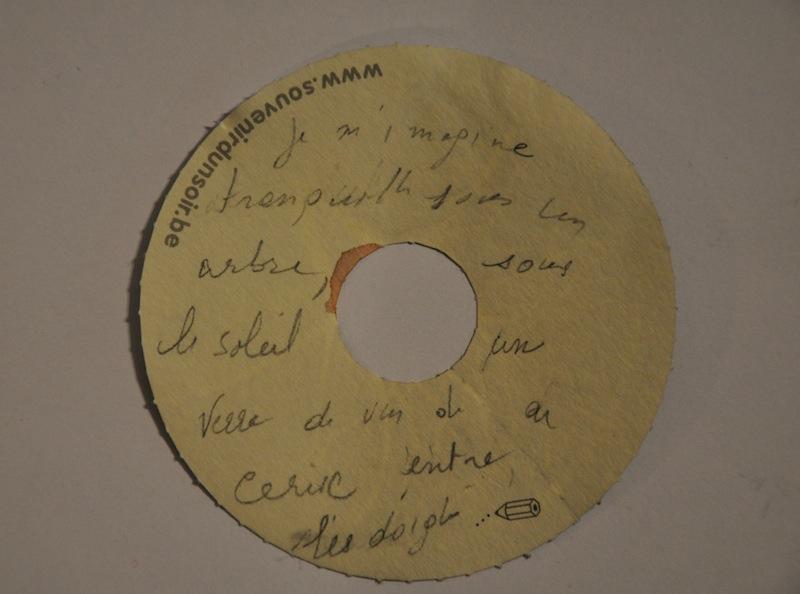 www.souvenirdunsoir.be
Je m'imagine
tranquille sous un
arbre, sous
le soleil un
verre de vin de
cerise entre
les doigts